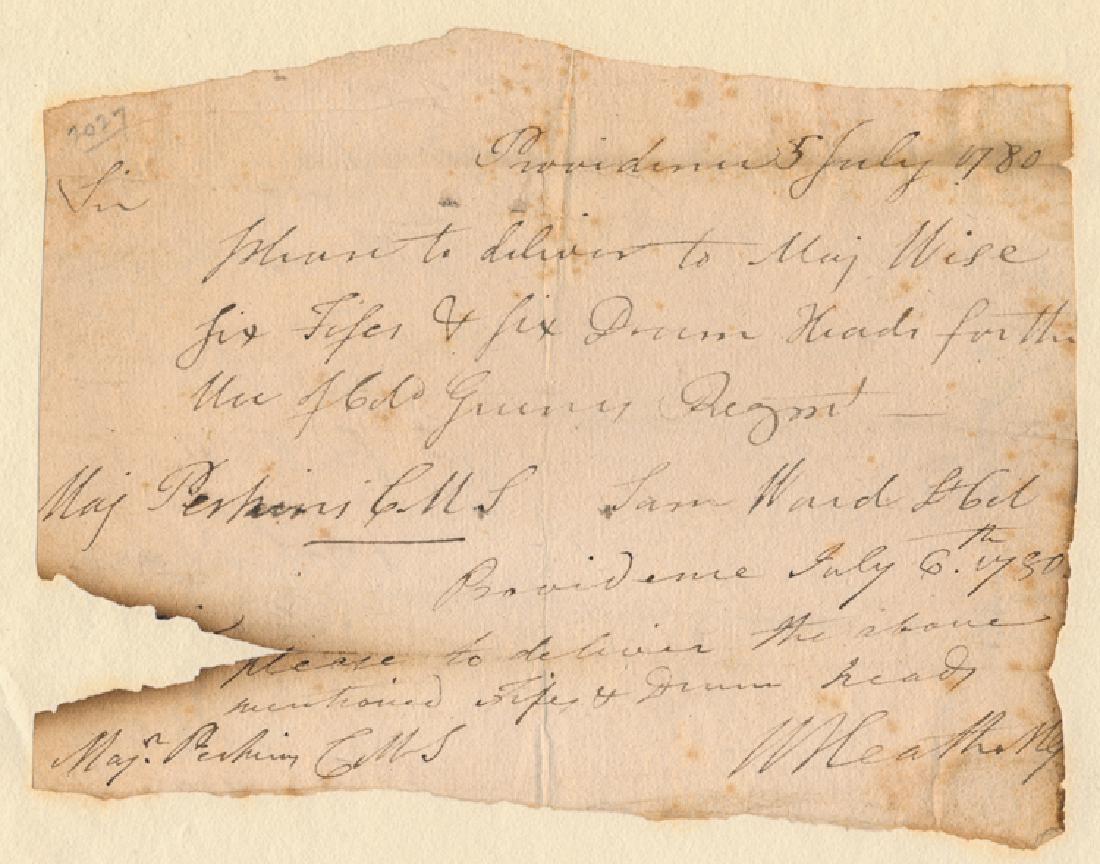 2027
Providence 5 July 1780
Sir
please to deliver to Maj Wise
six Fifes & six Drum Heads for the
Use of Col Greens Regmt
Maj Perkins C.M.S Sam Ward Lt Col
Providence July 6th. 1780
please to deliver the above
mentioned Fifes & Drum heads
Majr. Perkins CMS W Heath MG